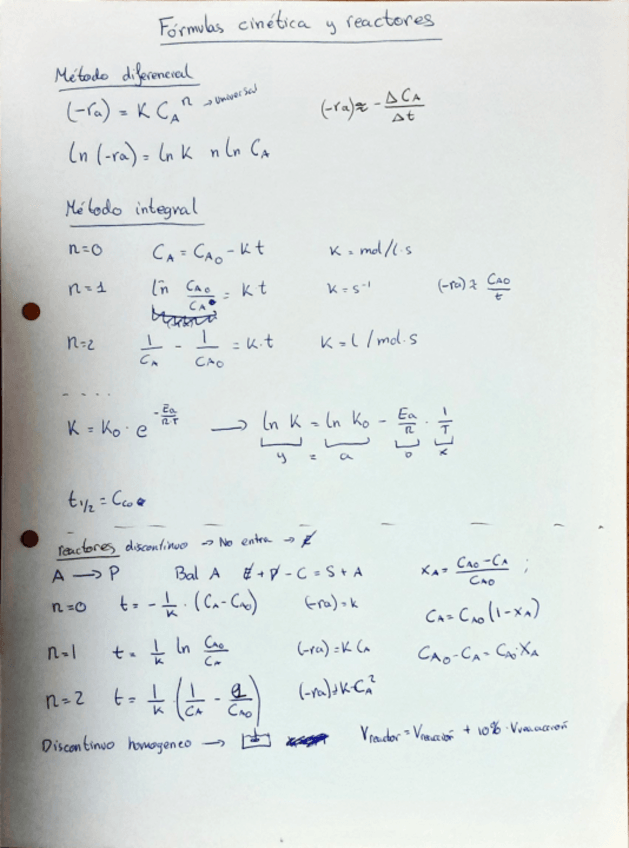 Fórmulas cinética y reactores
Método diferencial
(-ra) = K C_A^n → universal (-ra) ≈ - ΔC_A/Δt
ln (-ra) = ln K n ln C_A
Método integral
n=0 C_A = C_A0 - K t K = mol/l·s
n=1 ln C_A0/C_A = K t K = s^-1 (-ra) ≈ C_A0/t
n=2 1/C_A - 1/C_A0 = K·t K = l/mol·s
- - - -
K = K0 · e^(-Ea/RT) → ln K = ln K0 - Ea/R · 1/T
y = a b x
t1/2 =
reactores discontinuo → No entra → E
A → P Bal A E + P - C = S + A X_A = (C_A0 - C_A)/C_A0 ;
n=0 t = - 1/K · (C_A - C_A0) (-ra) = k C_A = C_A0 (1-X_A)
n=1 t = 1/K ln C_A0/C_A (-ra) = K C_A C_A0 - C_A = C_A0·X_A
n=2 t = 1/K · (1/C_A - 1/C_A0) (-ra) = K·C_A^2
Discontinuo homogeneo → V reactor = V reacción + 10% · V reacción